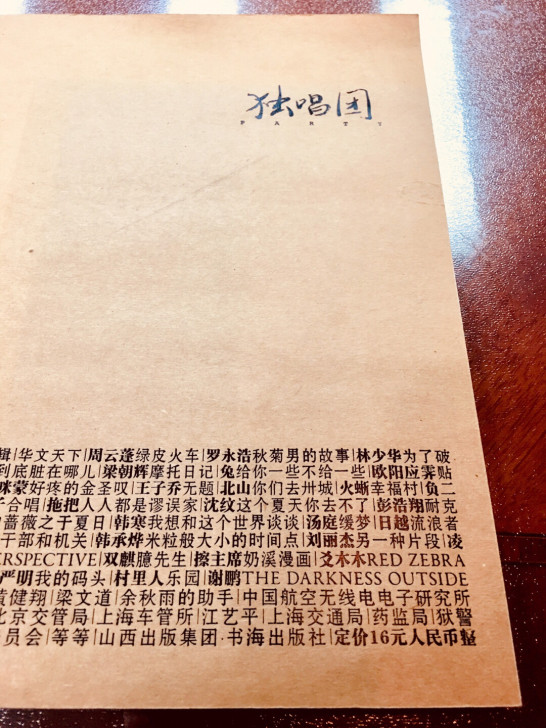 独唱团
PARTY
辑|华文天下|周云蓬绿皮火车|罗永浩秋菊男的故事|林少华为了破
到底脏在哪儿|梁朝辉摩托日记|兔给你一些不给一些|欧阳应霁贴
咪蒙好疼的金圣叹|王子乔无题|北山你们去卅城|火蜥幸福村|负二
合唱|拖把人人都是谬误家|沈纹这个夏天你去不了|彭浩翔耐克
蔷薇之于夏日|韩寒我想和这个世界谈谈|汤庭缓梦|日越流浪者
干部和机关|韩承烨米粒般大小的时间|刘丽杰另一种片段|凌
ERSPECTIVE|双麒臆先生|擦主席奶溪漫画|爻木木RED ZEBRA
严明我的码头|村里人乐园|谢鹏THE DARKNESS OUTSIDE
黄健翔|梁文道|余秋雨的助手|中国航空无线电电子研究所
北京交管局|上海车管所|江艺平|上海交通局|药监局|狱警
员会|等等|山西出版集团·书海出版社|定价16元人民币整